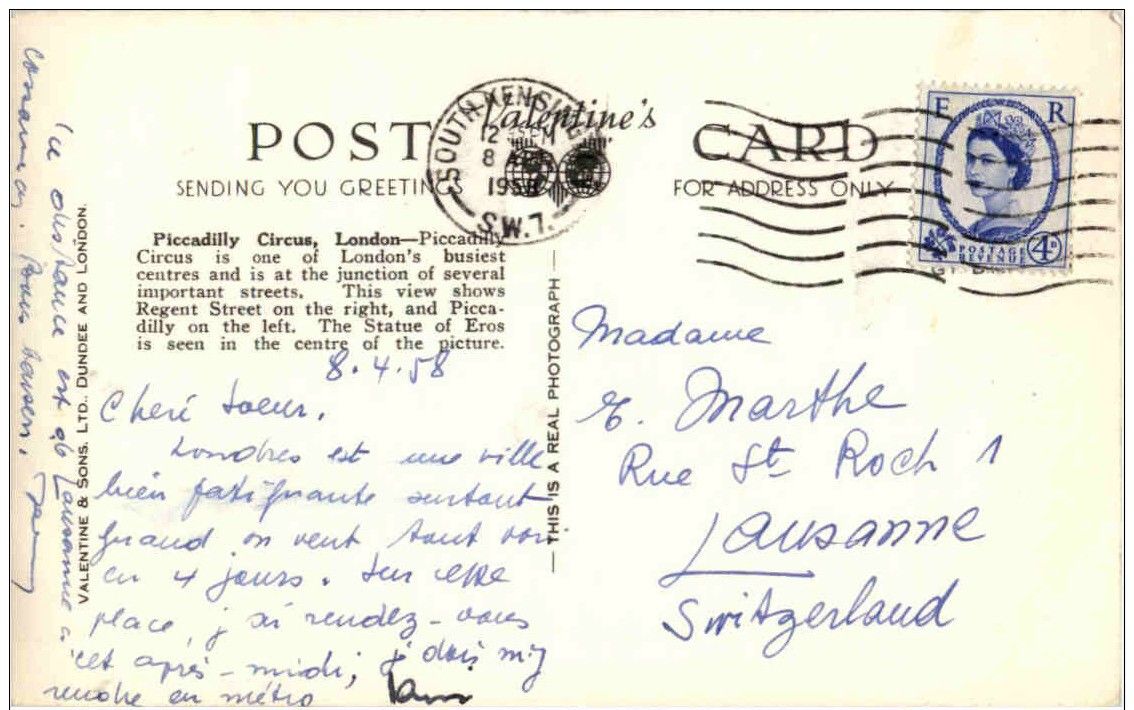 POST CARD
Valentine's
SENDING YOU GREETINGS
FOR ADDRESS ONLY
SOUTH KENSIN
8 AP
1958
S.W.7.
E R
POSTAGE
REVENUE
4D
Piccadilly Circus, London—Piccadilly
Circus is one of London's busiest
centres and is at the junction of several
important streets. This view shows
Regent Street on the right, and Picca-
dilly on the left. The Statue of Eros
is seen in the centre of the picture.
8.4.58
Cheré soeur,
Londres est une ville
bien fatiguante surtout
quand on veut tout voir
en 4 jours. Sur cette
place, j'ai rendez-vous
cet après-midi, j dois m'y
rendre en métro
distance est Lausanne à
VALENTINE & SONS, LTD., DUNDEE AND LONDON.
— THIS IS A REAL PHOTOGRAPH —
Madame
E. Marthe
Rue St Roch 1
Lausanne
Switzerland